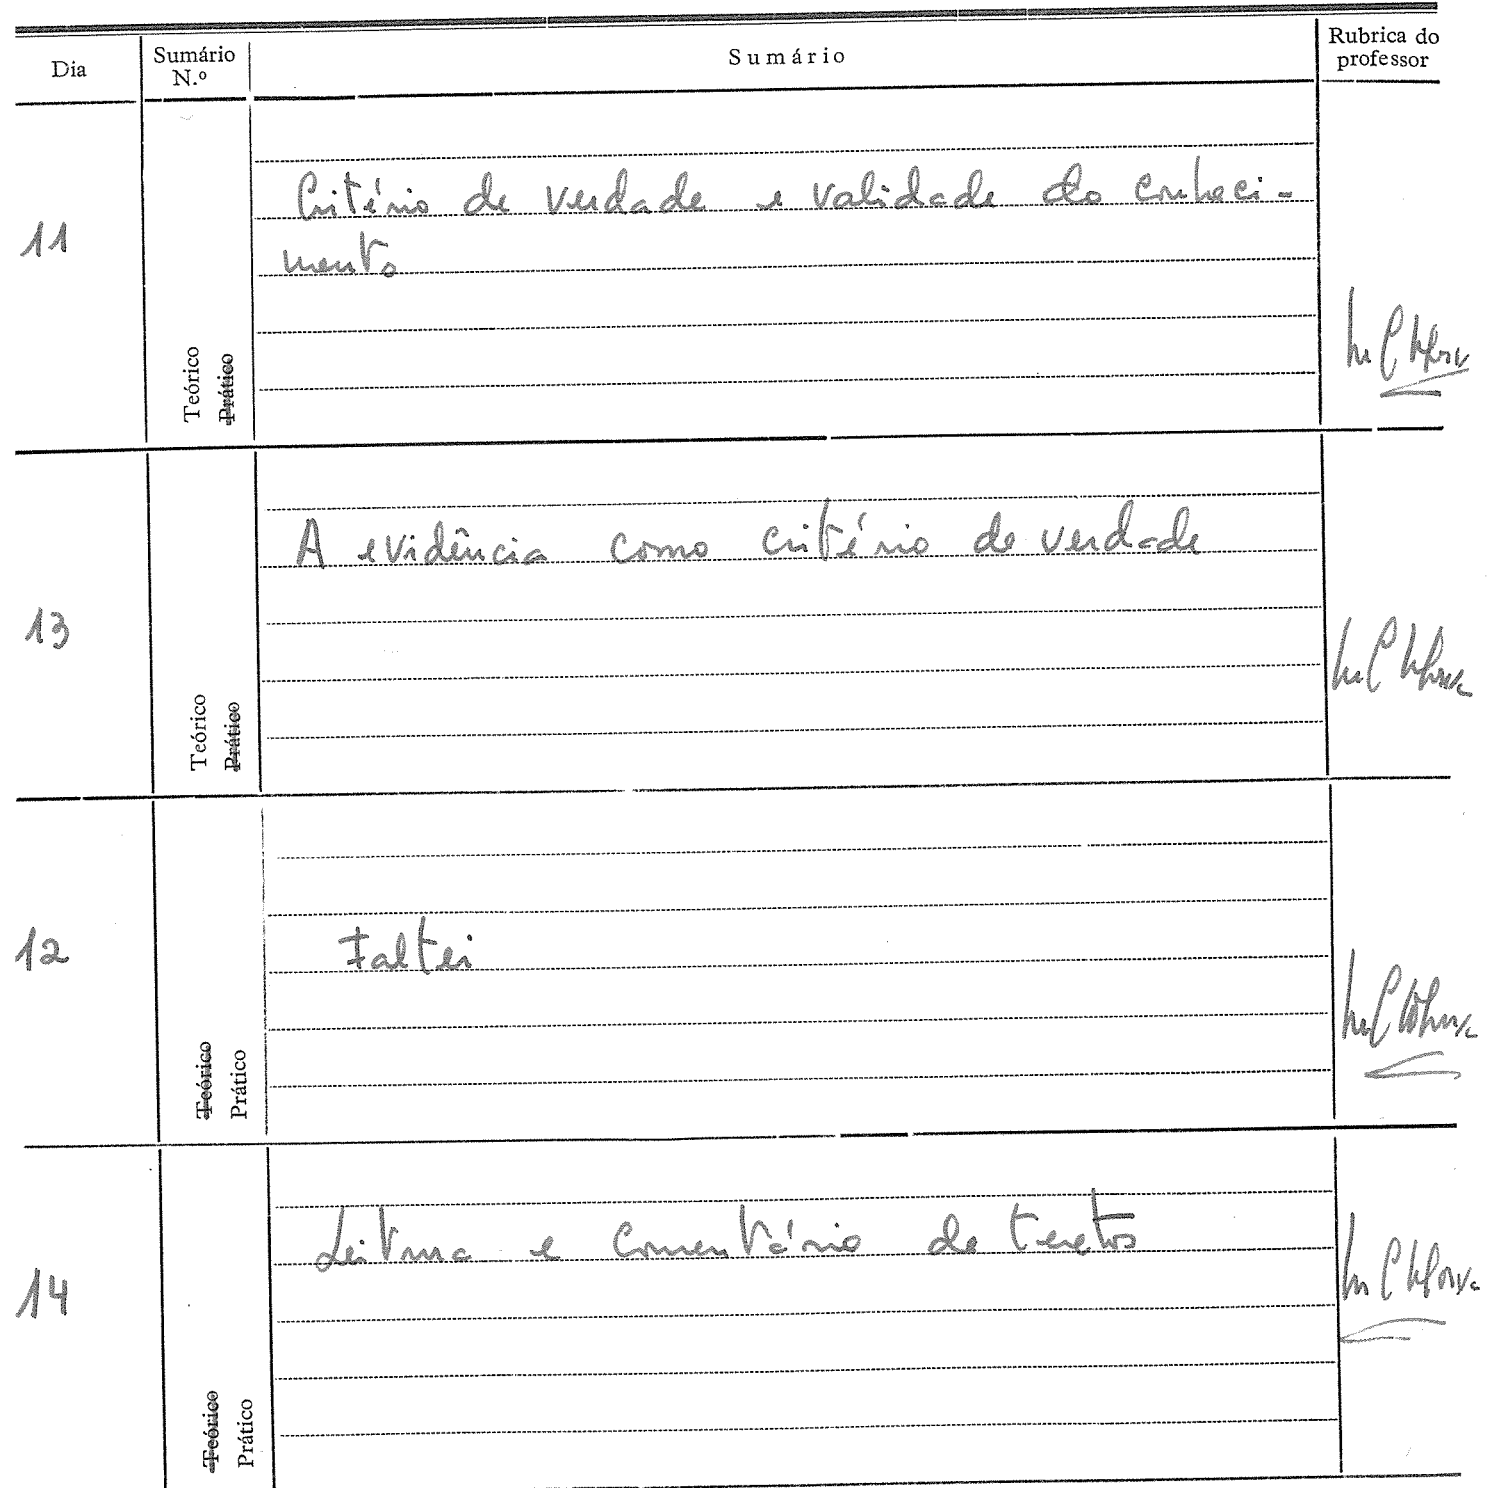 Dia Sumário N.º Sumário Rubrica do professor
11
Critério de verdade e validade do conheci-
mento
Teórico
Prático
13
A evidência como critério de verdade
Teórico
Prático
12
Faltei
Teórico
Prático
14
Leitura e comentário de textos
Teórico
Prático